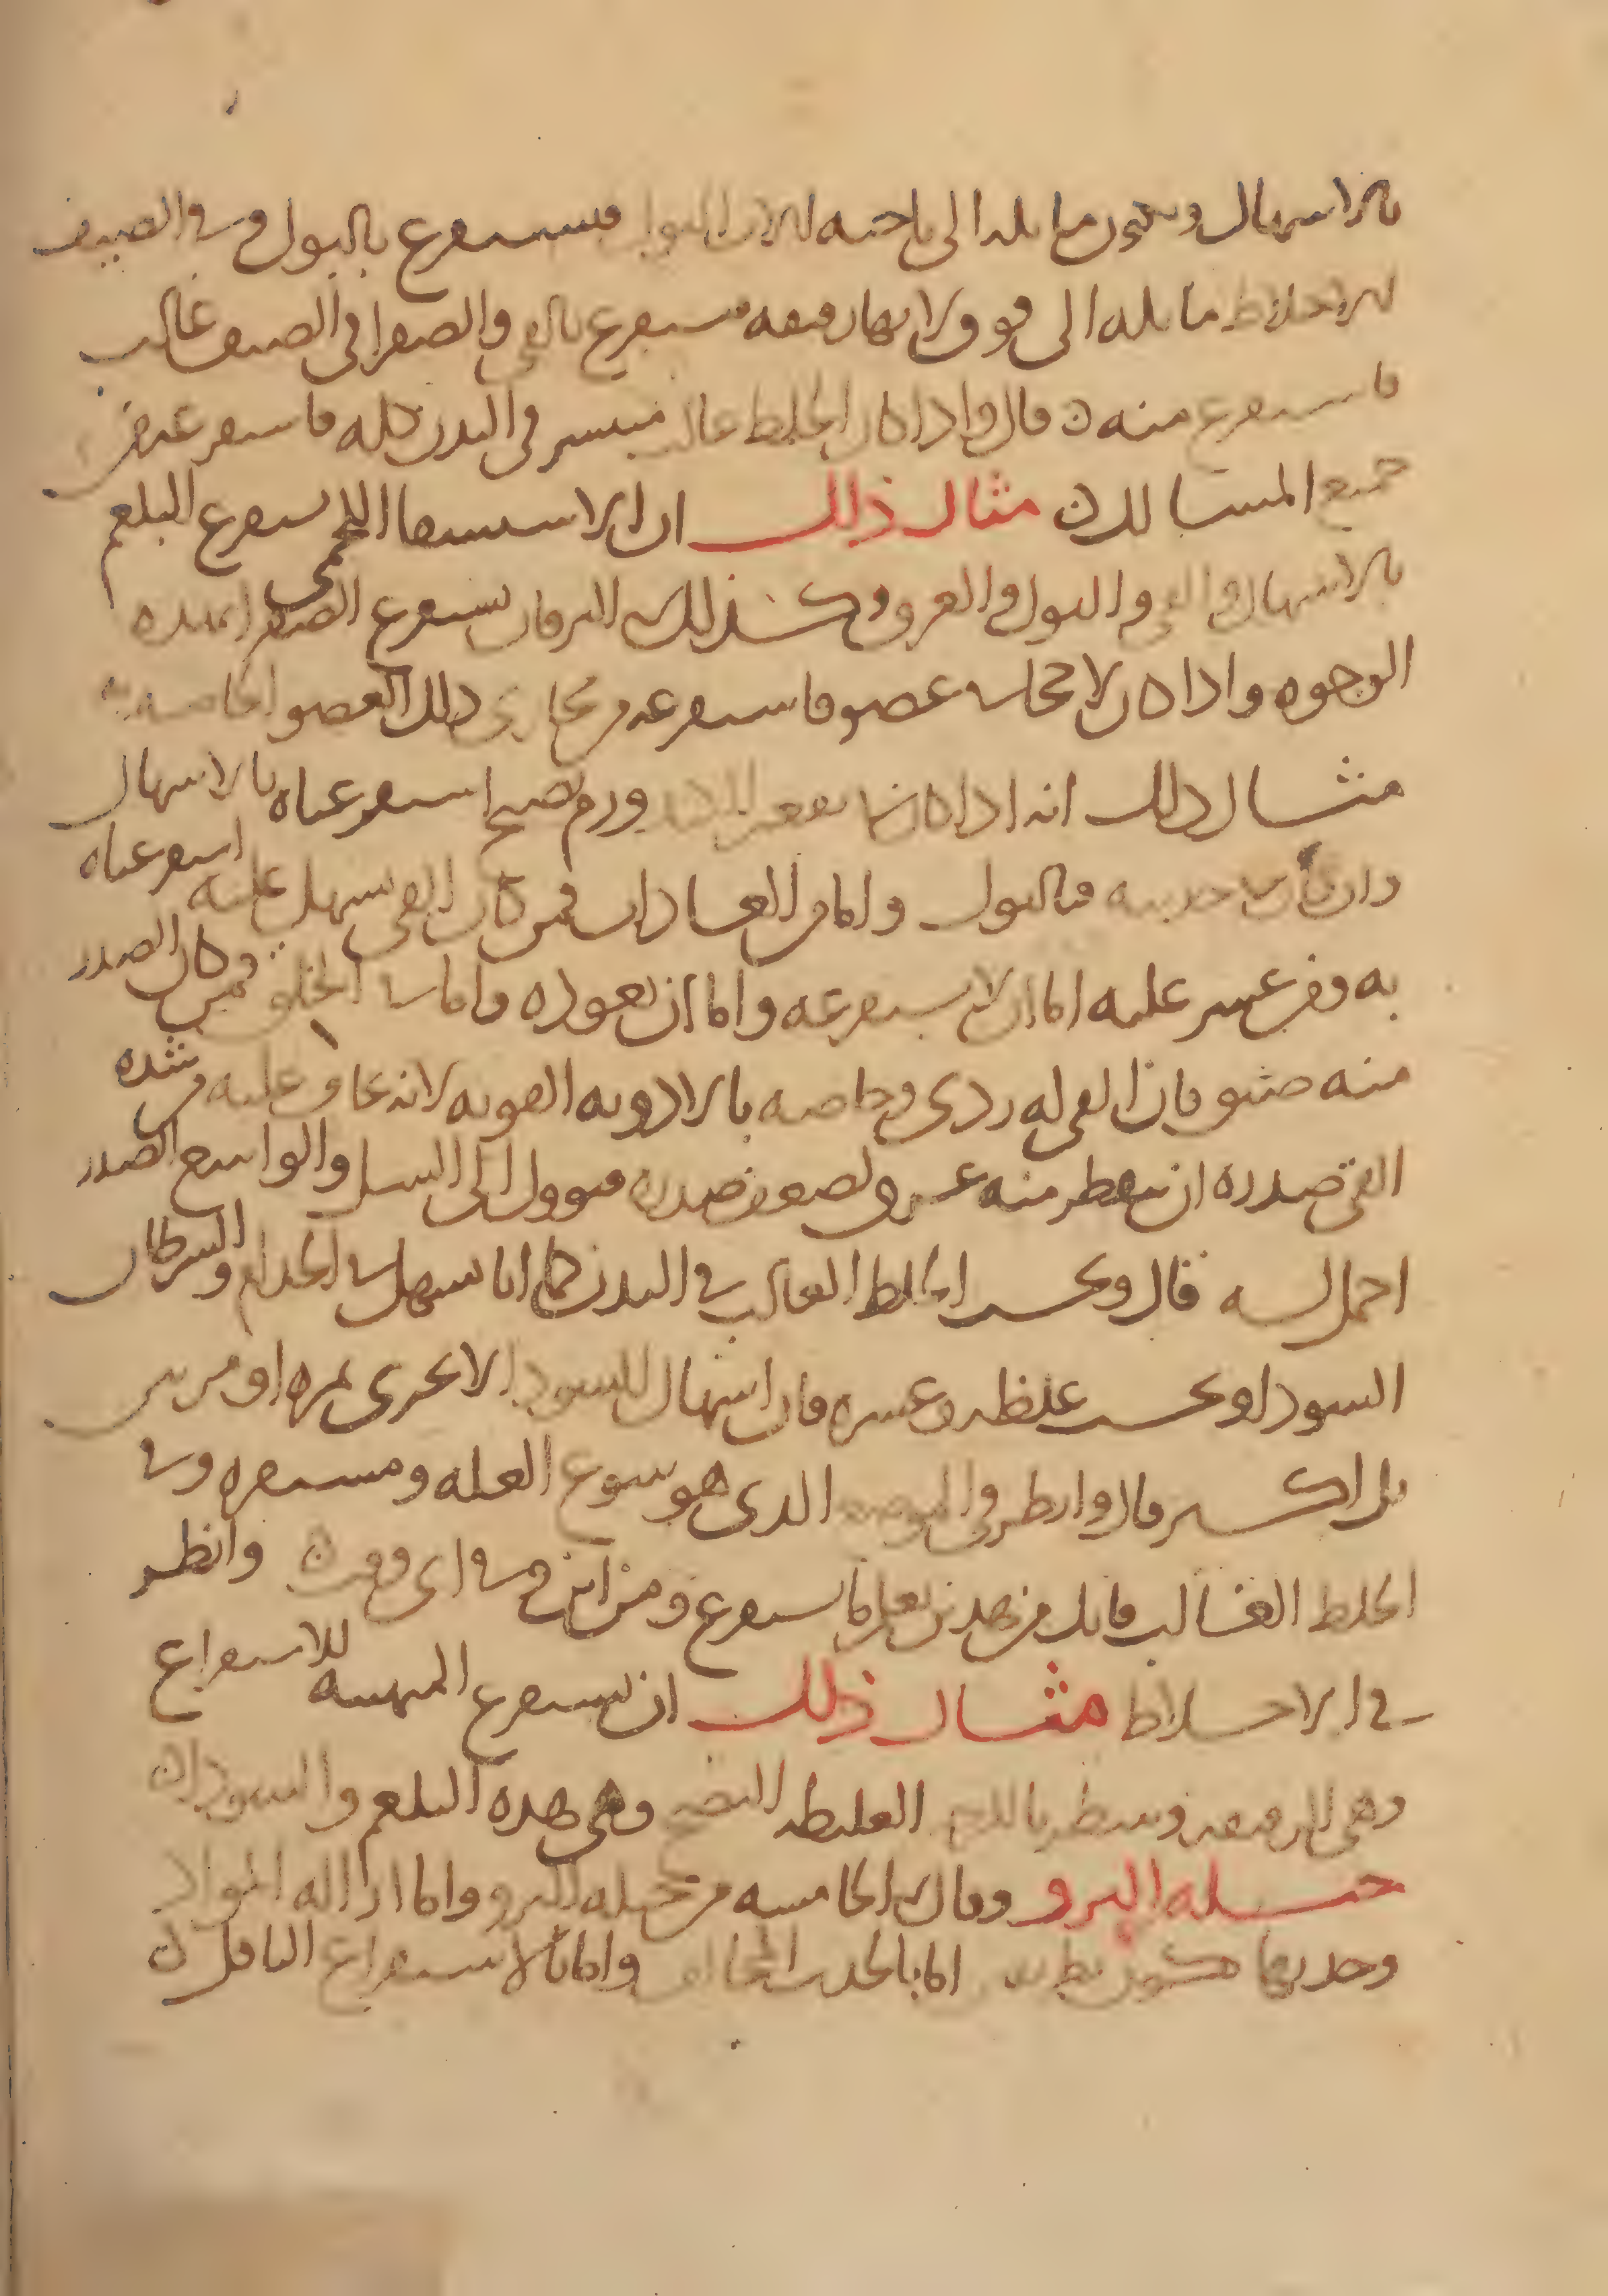 بالاسهال وتكون مايله الى ناحيه لان البول فيستفرغ بالبول وفي الصيف
الاخلاط مايله الى فوق ولانها رقيقه فيستفرغ بالقي والصفرا في الصيف غالب
فاستفرغ منه ن قال واذا كان الخلط غالب منتشر في البدن كله فاستفرغه من
جميع المسالك ن مثال ذلك ان الاستسقا اللحمي يستفرغ البلغم
بالاسهال والقي والبول والعرق وكذلك اليرقان يستفرغ الصفرا بهذه
الوجوه واذا كان لاحجا في عضو فاستفرغه من مجاري ذلك العضو الخاصه به
مثال ذلك انه اذا كان بمقعر الكبد ورم نضيج استفرغناه بالاسهال
وان كان في حدبته فبالبول واما من العادات فمن كان القي يسهل عليه استفرغناه
به ومن عسر عليه اما ان لا يستفرغه واما ان نعوده واما في الخلق فمن كان الصدر
منه ضيق فان القي له ردي وخاصه بالادويه القويه لانه يخاف عليه من شده
القي صدره ان ينقطر منه عرق ولضيق صدره فيوول الى السل والواسع الصدر
احمل لسه قال وبحسب الخلط الغالب في البدن كما انا نسهل في الجذام والسرطان
السودا وبحسب غلظه وعسره فان اسهال السودا لا يجزي بمره او مرتين
بل اكثر قال وانظر في الموضع الذي هو ينبوع العله ومستقره وفي
الخلط الغالب فانك من هذين تعلم ما يستفرغ ومن اين وفي اي وقت ن وانظر
في الاخلاط مثال ذلك ان نستفرغ المتهييه للاستفراغ
وهي الرقيقه وينتظر بالخام الغليظه النضج وهي هذه البلغم والسودا ن
حيله البرو وقال في الخامسه من حيله البرو واما ازاله المواد
وجذبها فيكون بطريقين اما بالجذب المخالف واما بالاستفراغ الناقل ن